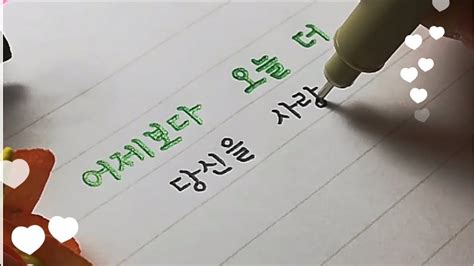 어제보다 오늘 더
당신을 사랑